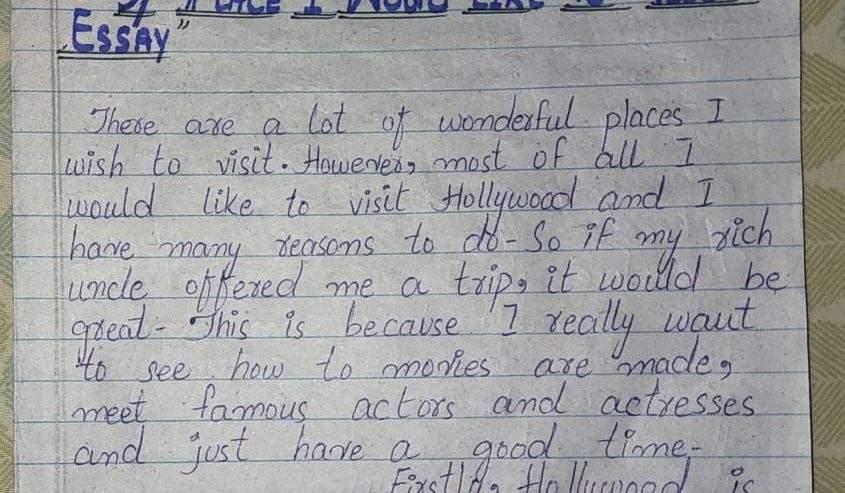 "A PLACE I WOULD LIKE TO
ESSAY"
There are a lot of wonderful places I
wish to visit. However, most of all I
would like to visit Hollywood and I
have many reasons to do - So if my rich
uncle offered me a trip, it would be
great - This is because I really want
to see how to movies are made,
meet famous actors and actresses
and just have a good time -
Firstly, Hollywood is